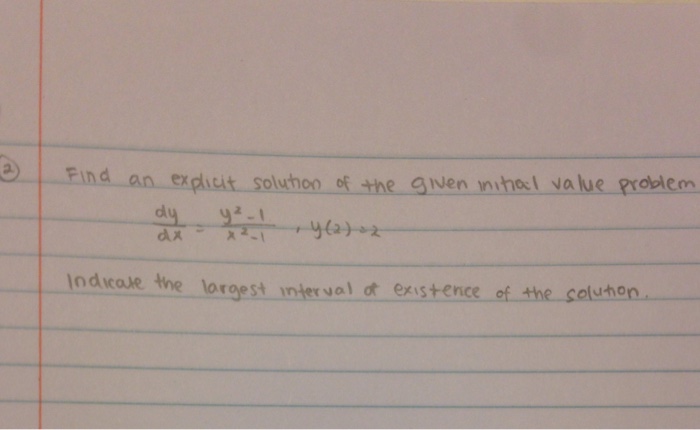 ② Find an explicit solution of the given initial value problem
dy/dx = y²-1/x²-1 , y(2)=2
Indicate the largest interval of existence of the solution.